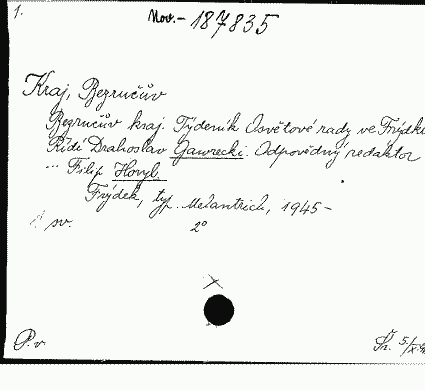 1.
Nov. - 187835
Kraj, Bezručův
Bezručův kraj. Týdeník Osvětové rady ve Frýdku
Řídí Drahoslav Gawrecki. Odpovědný redaktor
... Filip Horyl.
Frýdek, typ. Melantrich, 1945 -
sv. 2°
P. v